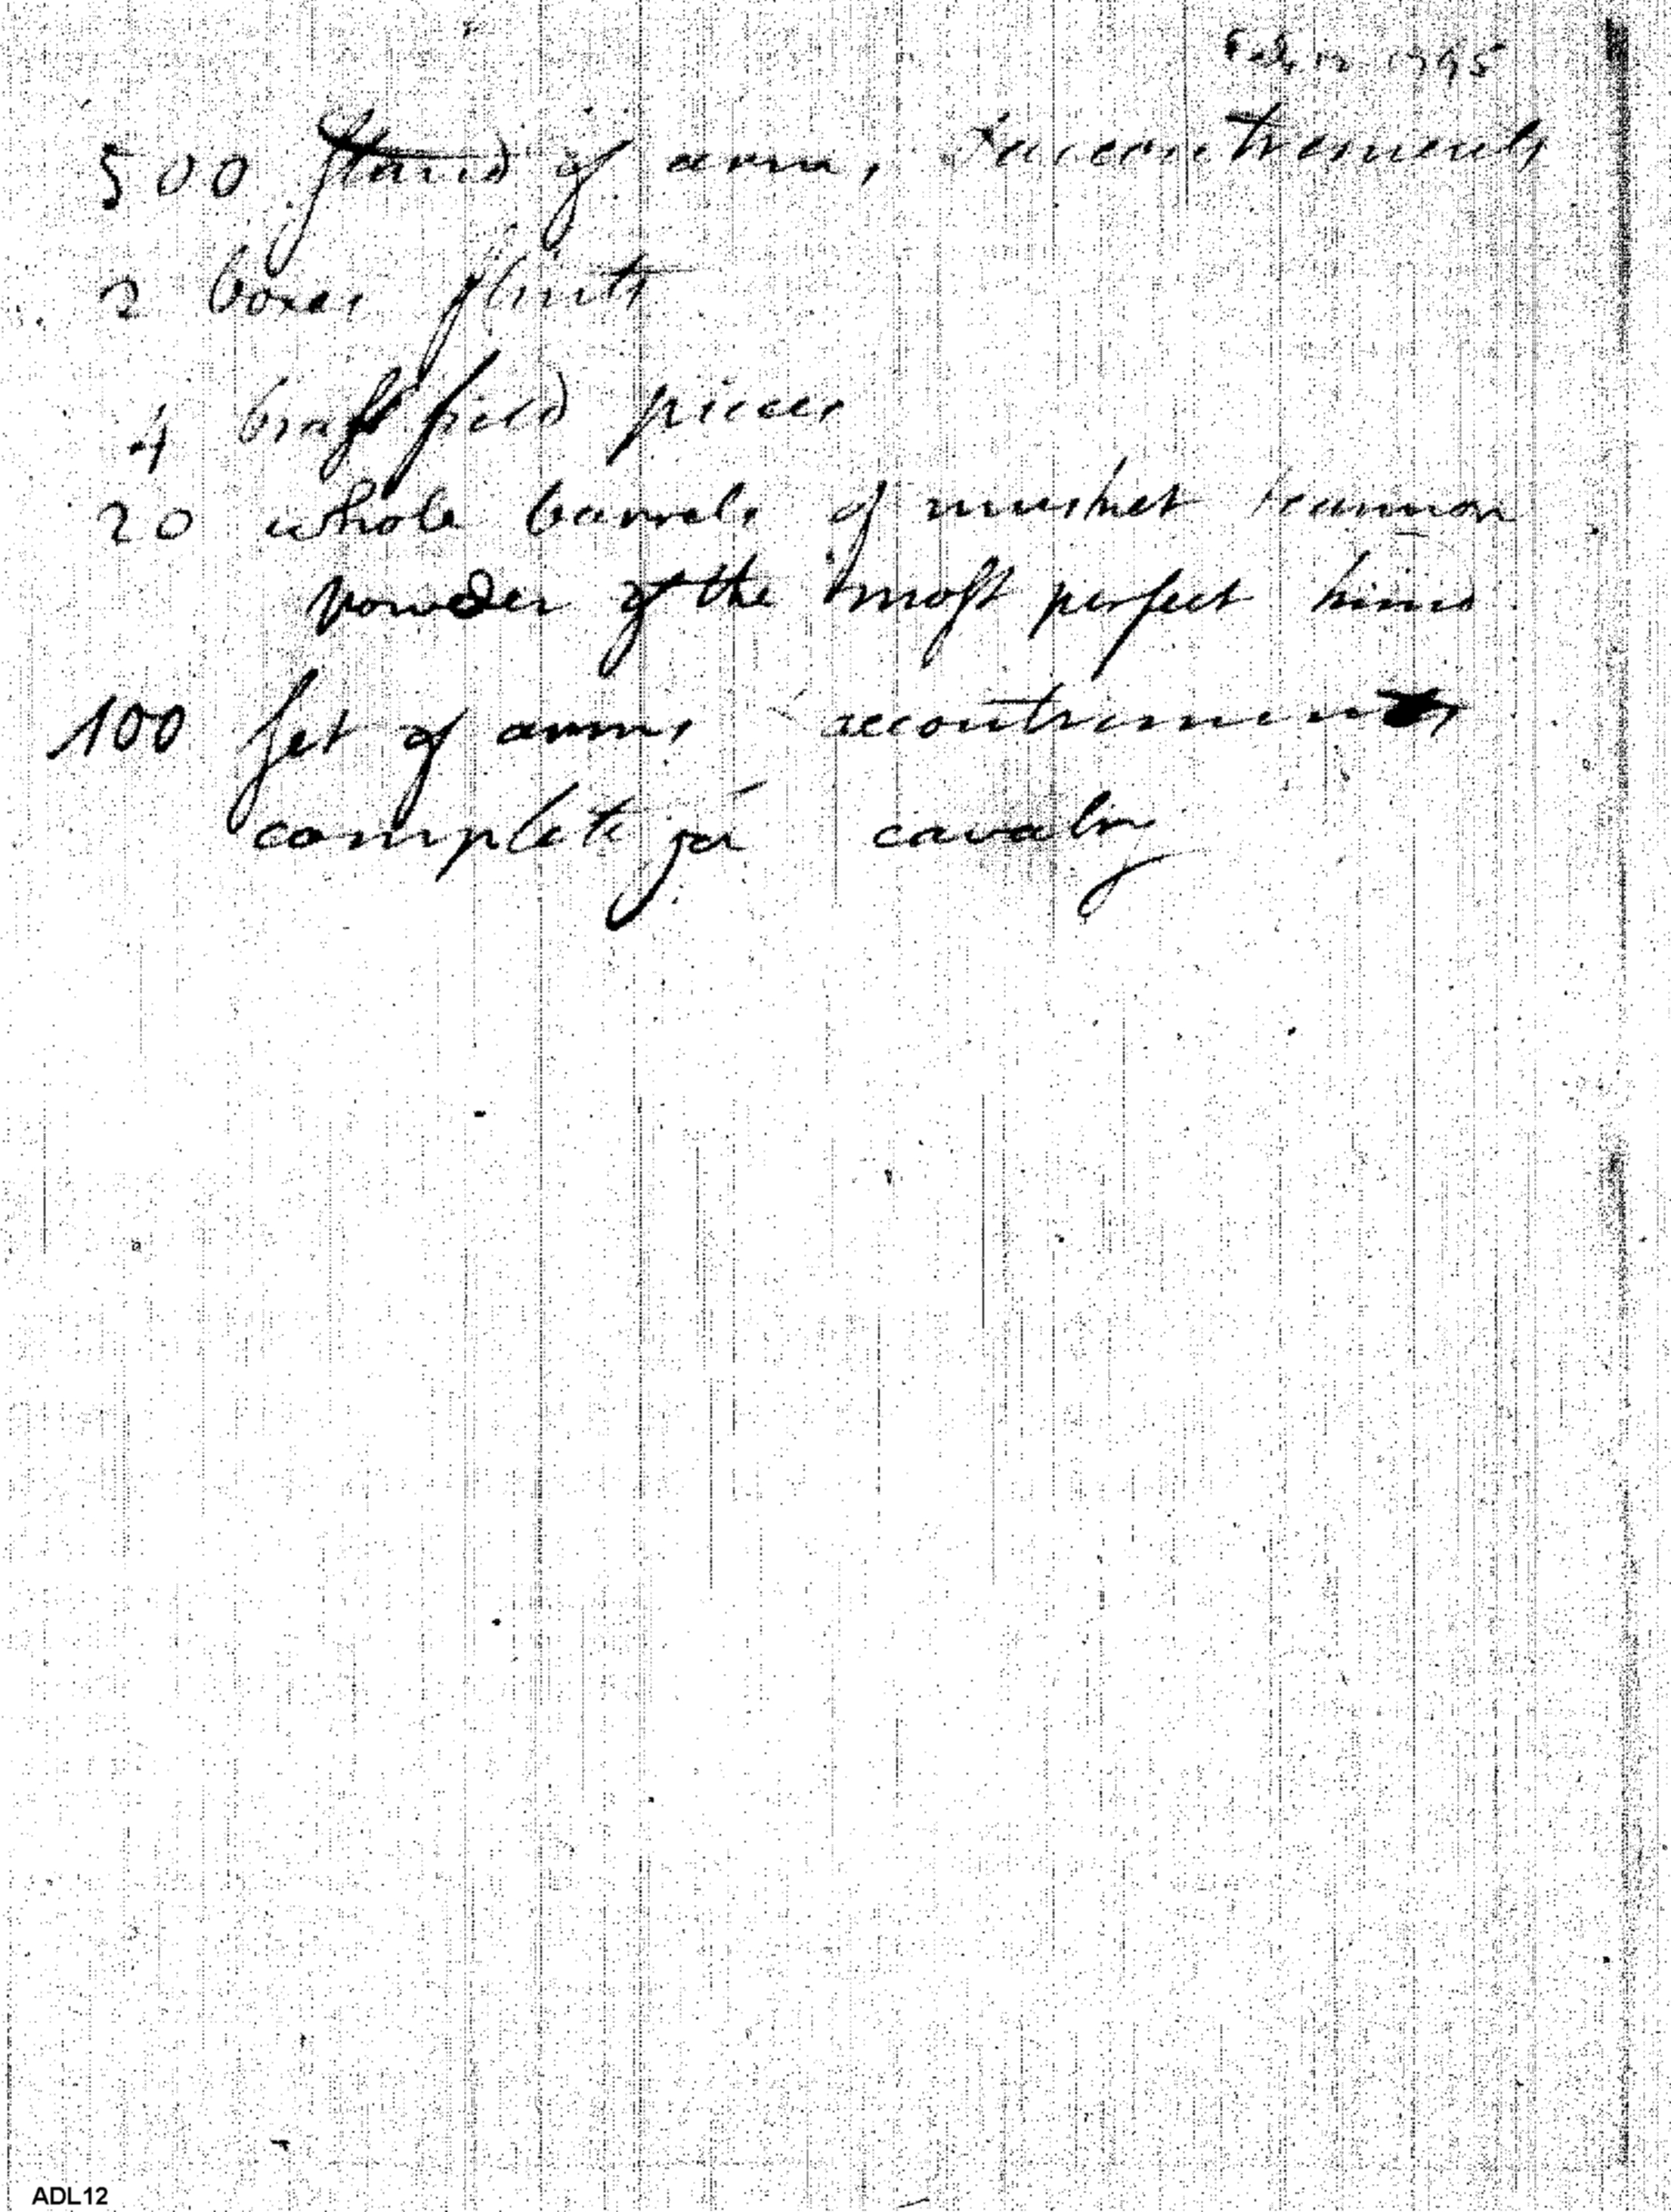 Feby 12 1795
500 stand of arms, & accoutrements
2 boxes flints
4 brass field pieces
20 whole barrels of musket & cannon
powder of the most perfect kind
100 set of arms accoutrements
complete for cavalry
ADL12